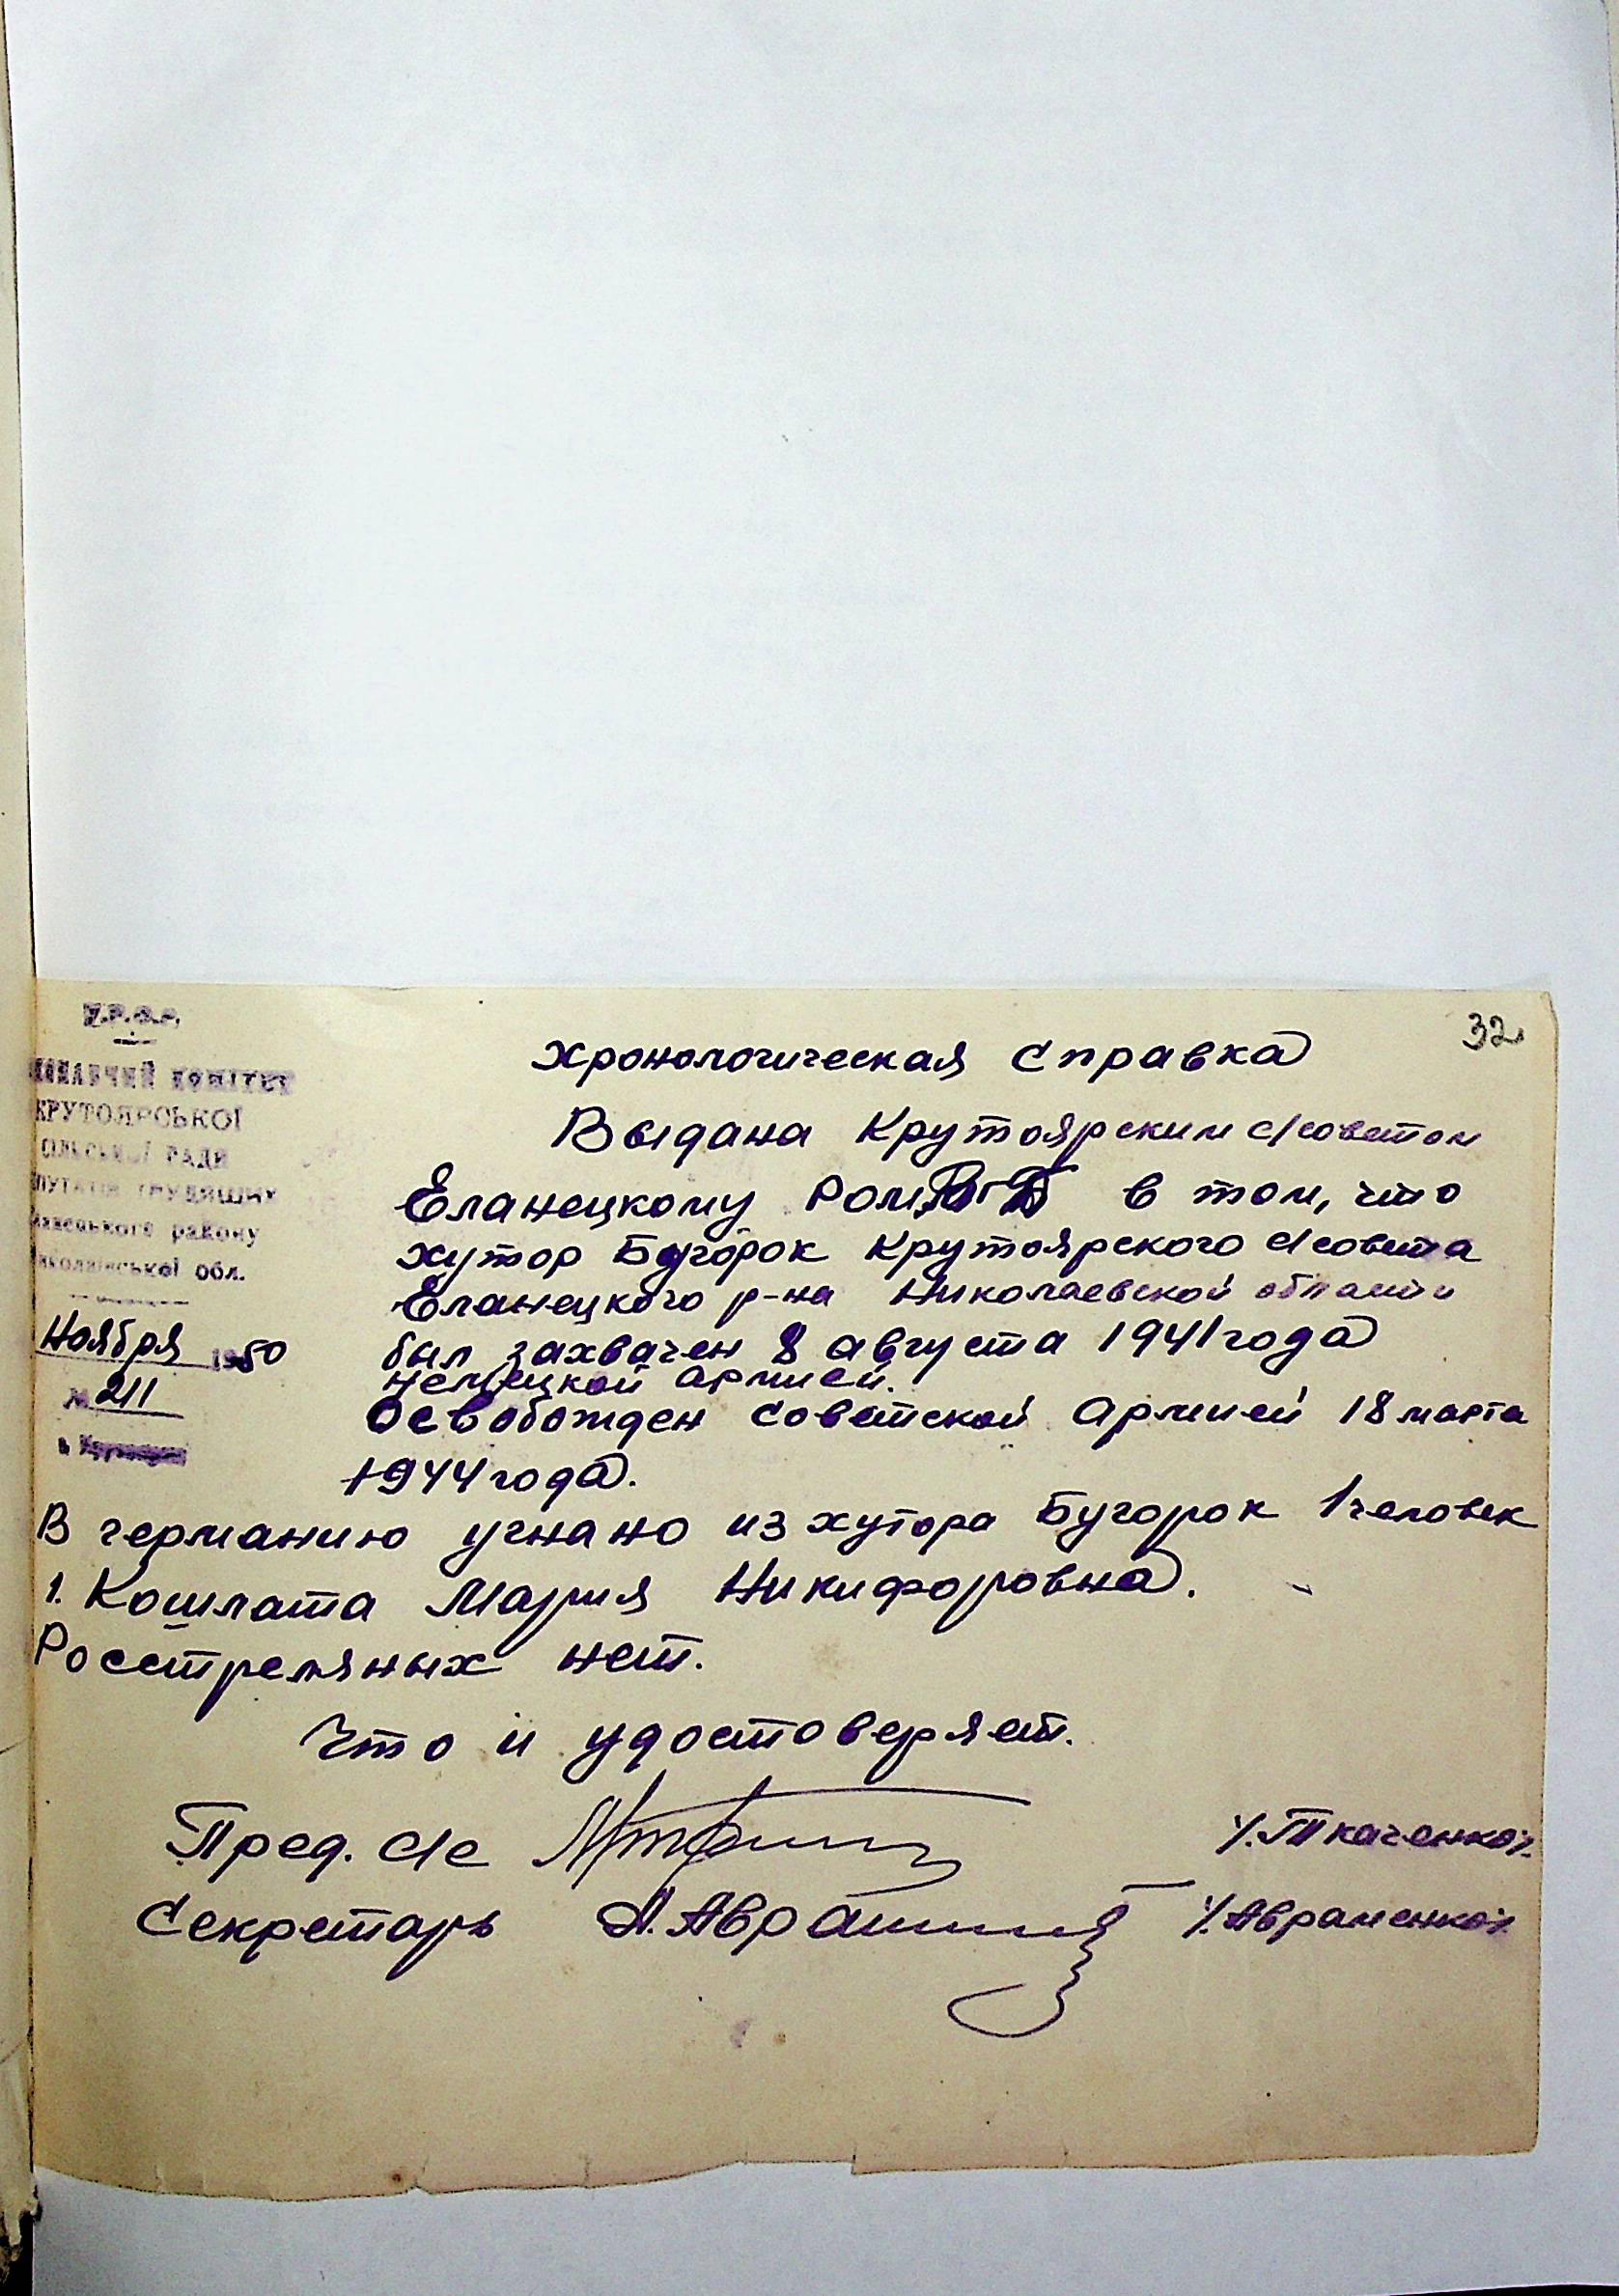 У.Р.С.Р.
32
КОНАВЧИЙ КОМІТЕТ
КРУТОЯРСЬКОЇ
ІЛЬСЬКОЇ РАДИ
ПУТАТІВ ТРУДЯЩИХ
анецького району
иколаївської обл.
Ноября 1950
№ 211
Хронологическая справка
Выдана Крутоярским с/советом
Еланецкому в том, что
хутор Бугорок Крутоярского с/совета
Еланецкого р-на Николаевской области
был захвачен 8 августа 1941 года
немецкой армией.
Освобожден советской армией 18 марта
1944 года.
В германию угнано из хутора Бугорок 1 человек
1. Кошлата Мария Никифоровна.
Росстреляных нет.
Что и удостоверяет.
Пред. с/с /.Ткаченко/.
Секретарь А. Авраменко /.Авраменко/.